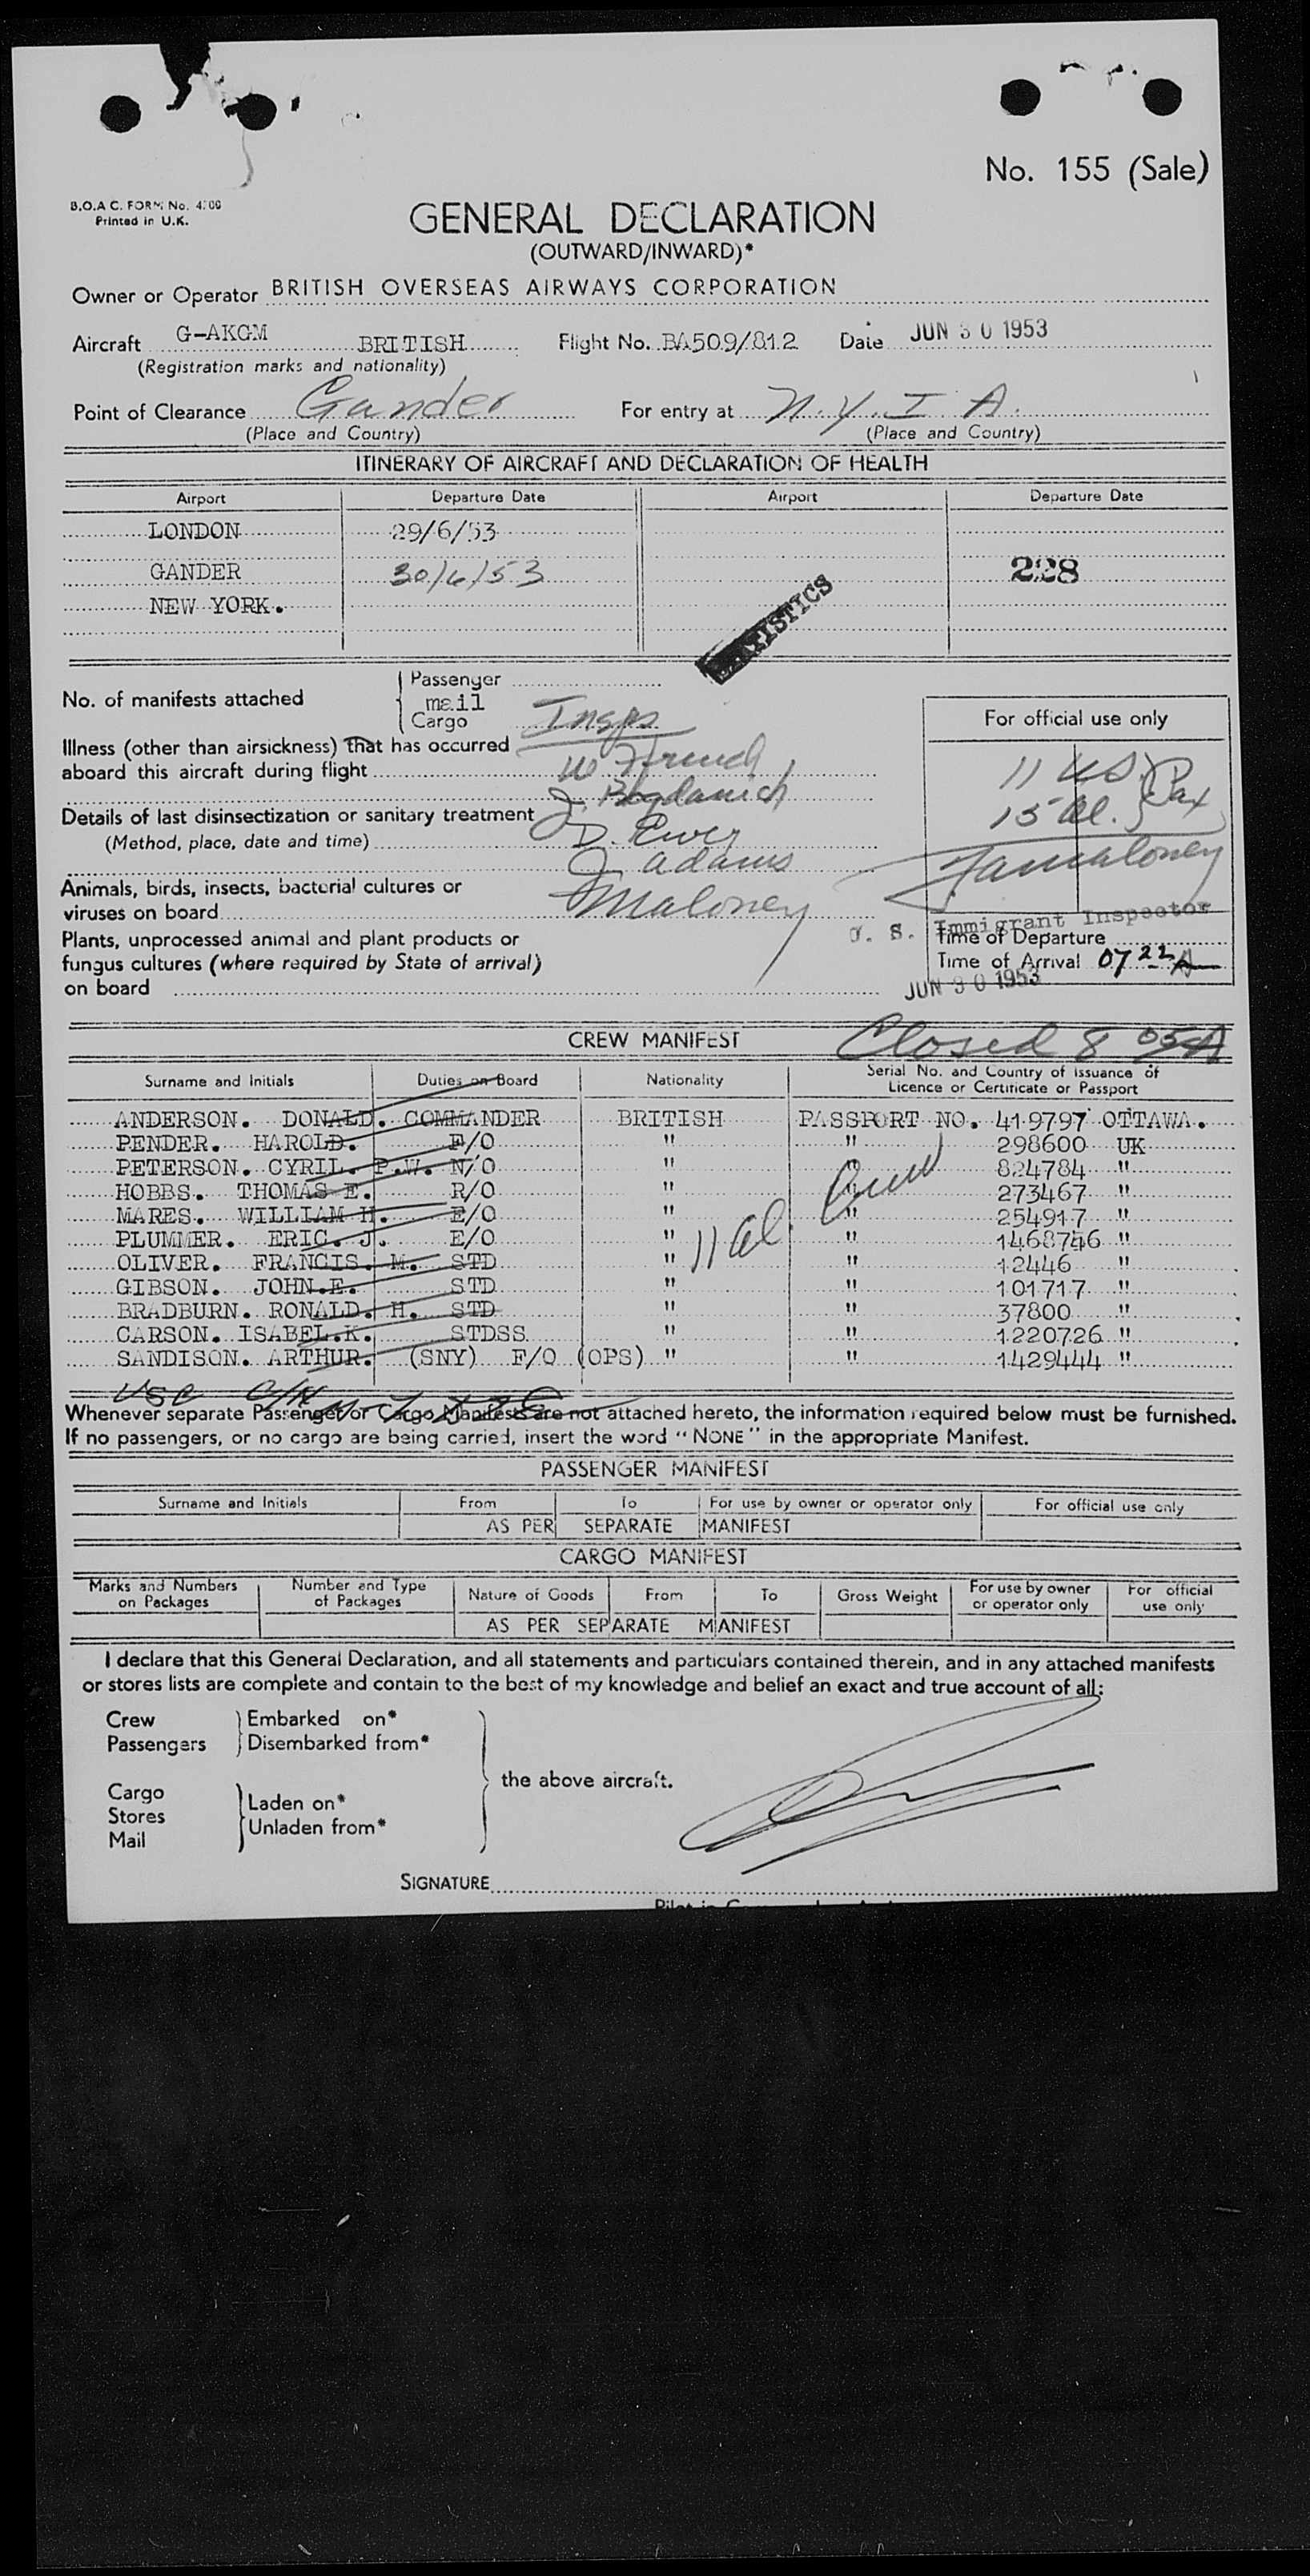 No. 155 (Sale)
B.O.A.C. FORM No.
Printed in U.K.
GENERAL DECLARATION
(OUTWARD/INWARD)*
Owner or Operator BRITISH OVERSEAS AIRWAYS CORPORATION
Aircraft G-AKGM BRITISH Flight No. BA509/812 Date JUN 30 1953
(Registration marks and nationality)
Point of Clearance Gander For entry at N.Y.I.A.
(Place and Country) (Place and Country)
ITINERARY OF AIRCRAFT AND DECLARATION OF HEALTH
Airport Departure Date Airport Departure Date
LONDON 29/6/53
GANDER 30/6/53 228
NEW YORK.
Passenger
No. of manifests attached mail
Cargo Insps
For official use only
Illness (other than airsickness) that has occurred
aboard this aircraft during flight W French
11 US. } Pax
J. Bogdanich
15 al.
Details of last disinsectization or sanitary treatment
(Method, place, date and time) D. Ewer
J adams
Animals, birds, insects, bacterial cultures or
viruses on board Maloney
U. S. Immigrant Inspector
Plants, unprocessed animal and plant products or
Time of Departure
fungus cultures (where required by State of arrival)
Time of Arrival 07 22 A
on board
JUN 30 1953
CREW MANIFEST Closed 8 05 A
Surname and Initials Duties on Board Nationality Serial No. and Country of Issuance of
Licence or Certificate or Passport
ANDERSON. DONALD. COMMANDER BRITISH PASSPORT NO. 419797 OTTAWA.
PENDER. HAROLD. F/O " " 298600 UK
PETERSON. CYRIL. P.W. N/O " " 824784 "
HOBBS. THOMAS E. R/O " " 273467 "
MARES. WILLIAM H. E/O " " 254917 "
PLUMMER. ERIC. J. E/O " " 1468746 "
11 al. Crew
OLIVER. FRANCIS. M. STD " " 12446 "
GIBSON. JOHN.E. STD " " 101717 "
BRADBURN. RONALD. H. STD " " 37800 "
CARSON. ISABEL.K. STDSS " " 1220726 "
SANDISON. ARTHUR. (SNY) F/O (OPS) " " 1429444 "
USC
Whenever separate Passenger or Cargo Manifests are not attached hereto, the information required below must be furnished.
If no passengers, or no cargo are being carried, insert the word "NONE" in the appropriate Manifest.
PASSENGER MANIFEST
Surname and Initials From To For use by owner or operator only For official use only
AS PER SEPARATE MANIFEST
CARGO MANIFEST
Marks and Numbers on Packages Number and Type of Packages Nature of Goods From To Gross Weight For use by owner or operator only For official use only
AS PER SEPARATE MANIFEST
I declare that this General Declaration, and all statements and particulars contained therein, and in any attached manifests
or stores lists are complete and contain to the best of my knowledge and belief an exact and true account of all:
Crew Embarked on*
Passengers Disembarked from*
the above aircraft.
Cargo
Laden on*
Stores
Unladen from*
Mail
SIGNATURE